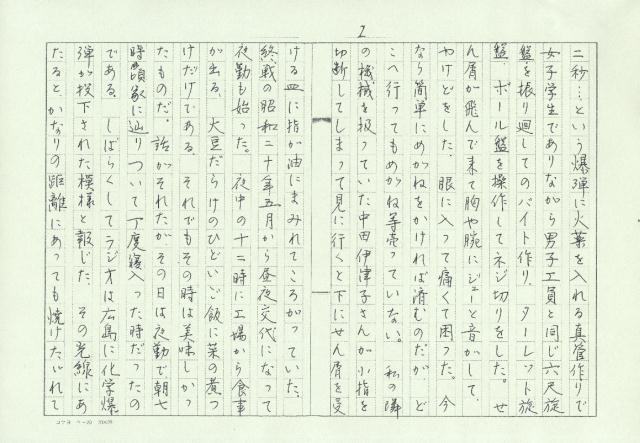 2
二秒…という爆弾に火薬を入れる真管作りで
女子学生でありながら男子工員と同じ六尺旋
盤を振り廻してのバイト作り、ターレット旋
盤、ボール盤を操作してネジ切りをした。せ
ん屑が飛んで来て胸や腕にジューと音がして、
やけどをした。眼に入って痛くて困った。今
なら簡単にめがねをかければ済むのだが ど
こへ行ってもめがね等売っていない。私の隣
の機械を扱っていた中田伊津子さんが小指を
切断してしまって見に行くと下にせん屑を受
ける皿に指が油にまみれてころがっていた。
終戦の昭和二十年五月から昼夜交代になって
夜勤も始った。夜中の十二時に工場から食事
が出る。大豆だらけのひどいご飯に菜の煮つ
けだけである。それでもその時は美味しかっ
たものだ。話がそれたがその日は夜勤で朝七
時頃家に辿りついて丁度寝入った時だったの
である。しばらくしてラジオは広島に化学爆
弾が投下された模様と報じた。その光線にあ
たると、かなりの距離にあっても焼けただれて
コクヨ ケ-20 20×20